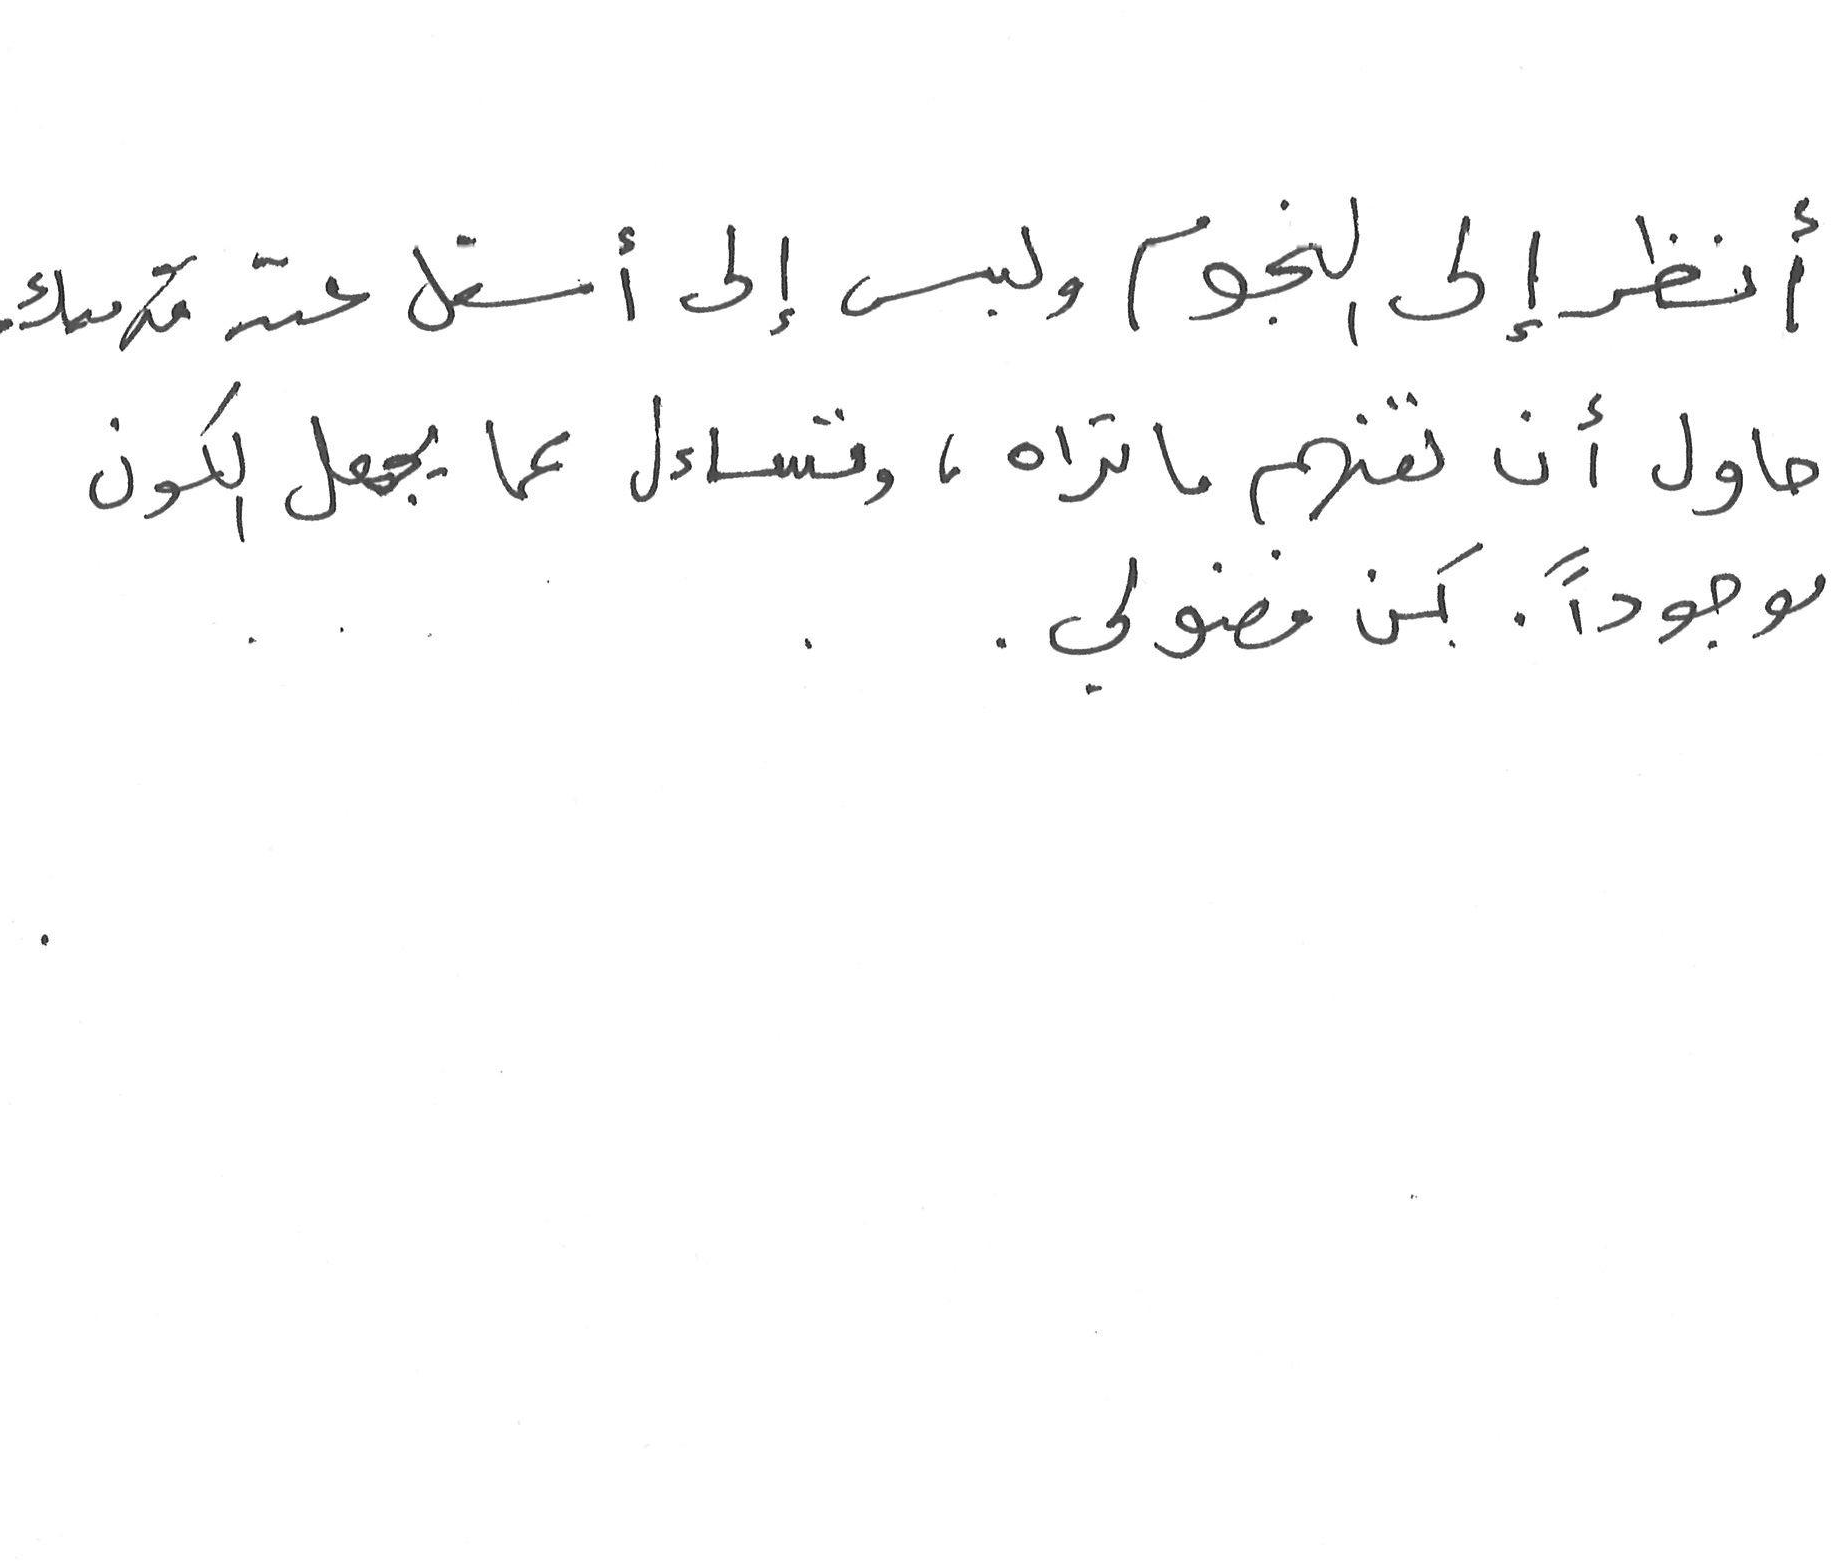 أنظر إلى النجوم وليس إلى أسفل عند قدميك.
حاول أن تفهم ما تراه، وتتساءل عما يجعل الكون
موجوداً. كن فضولي.